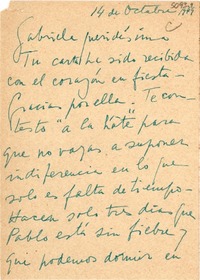 14 de Octubre
Gabriela queridísima
Tu carta ha sido recibida
con el corazón en fiesta
Gracias por ella. Te con-
testo "a la Kate" para
que no vayas a suponer
indiferencia en lo que
solo es falta de tiempo.
Hacen solo tres días que
Pablo está sin fiebre y
que podemos dormir en